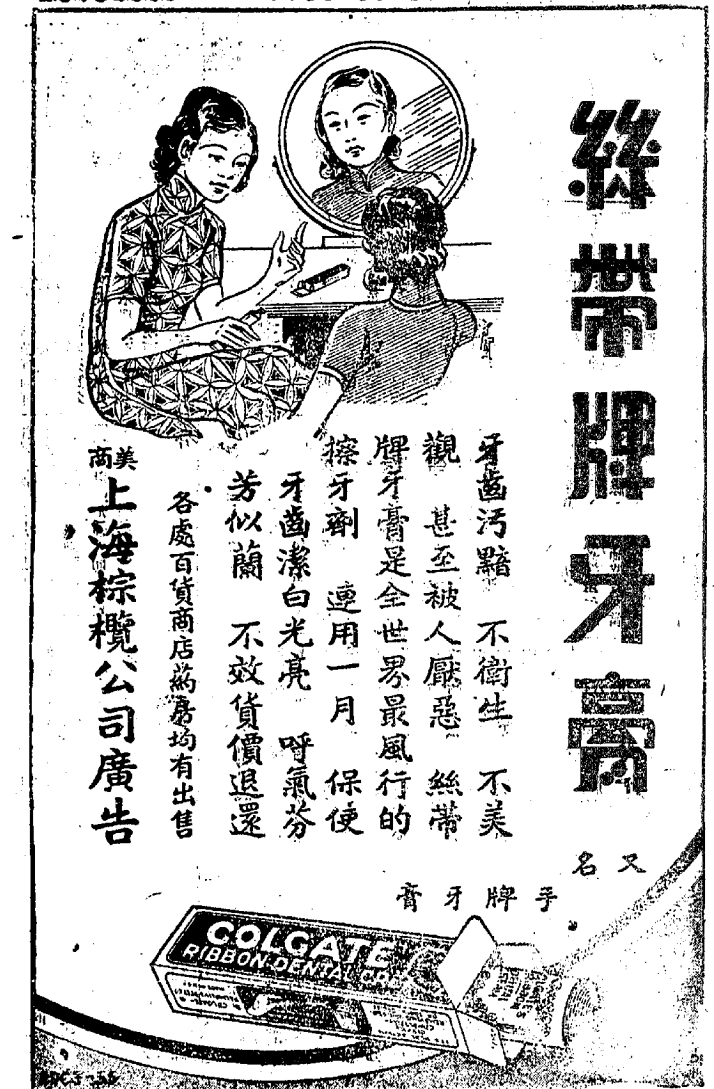 絲帶牌牙膏
又名
手牌牙膏
牙齒汚黯 不衛生 不美
觀 甚至被人厭惡 絲帶
牌牙膏是全世界最風行的
擦牙劑 連用一月 保使
牙齒潔白光亮 呼氣芬
芳似蘭 不效貨價退還
各處百貨商店葯房均有出售
美商
上海棕欖公司廣告
COLGATE
RIBBON DENTAL